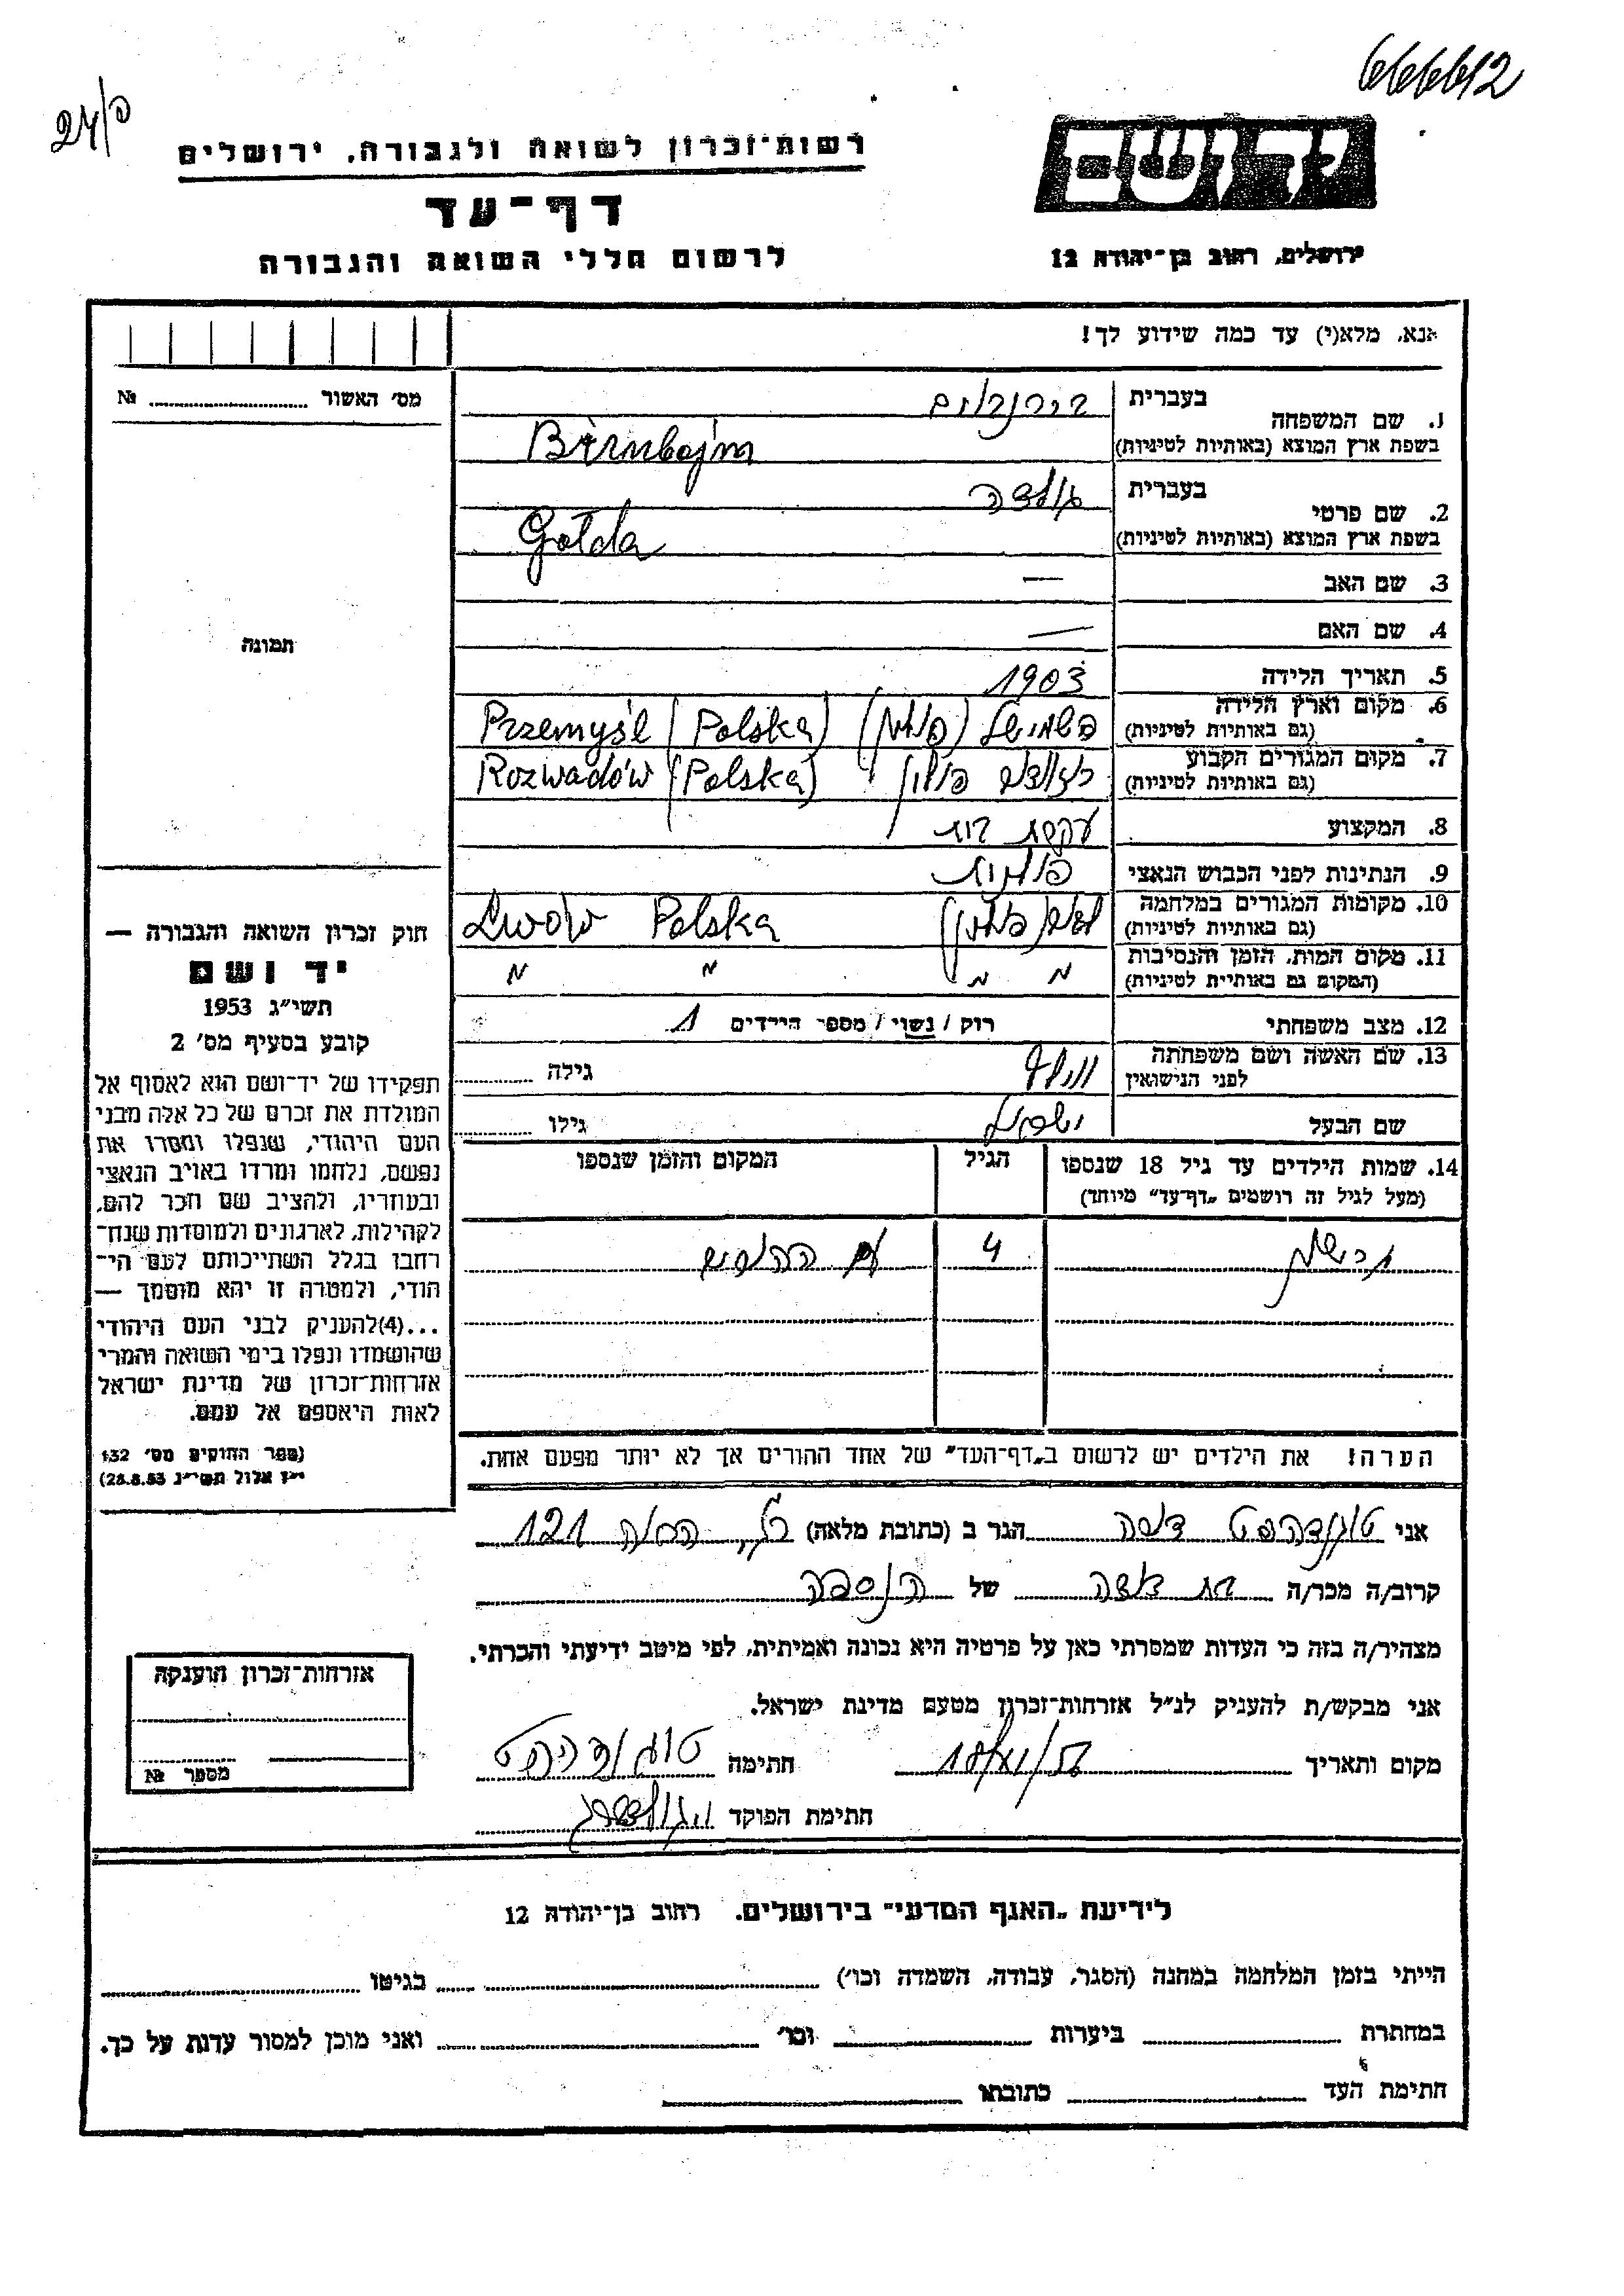 666612
24/ס
רשות־זכרון לשואה ולגבורה, ירושלים
דף־עד
לרשום חללי השואה והגבורה
יד ושם
ירושלים, רחוב בן־יהודה 12
אנא, מלא(י) עד כמה שידוע לך!
מס׳ האשור № 
1. שם המשפחה בעברית בירנבוים
בשפת ארץ המוצא (באותיות לטיניות) Birnbojm
2. שם פרטי בעברית גולדה
בשפת ארץ המוצא (באותיות לטיניות) Gołda
3. שם האב —
4. שם האם —
5. תאריך הלידה 1903
6. מקום וארץ הלידה (גם באותיות לטיניות) פשמישל (פולין) Przemyśl (Polska)
7. מקום המגורים הקבוע (גם באותיות לטיניות) רוזוודוב פולין Rozwadów (Polska)
8. המקצוע עקרת בית
9. הנתינות לפני הכבוש הנאצי פולנית
10. מקומות המגורים במלחמה (גם באותיות לטיניות) לבוב (פולין) Lwów Polska
11. מקום המות, הזמן והנסיבות (המקום גם באותיות לטיניות) " " " "
12. מצב משפחתי רוק / נשוי / מספר הילדים 1
13. שם האשה ושם משפחתה לפני הנישואין גילה
שם הבעל גילו
14. שמות הילדים עד גיל 18 שנספו (מעל לגיל זה רושמים „דף־עד" מיוחד)
הגיל
המקום והזמן שנספו
4 עם ההורים
הערה! את הילדים יש לרשום ב„דף־העד" של אחד ההורים אך לא יותר מפעם אחת.
תמונה
חוק זכרון השואה והגבורה —
יד ושם
תשי״ג 1953
קובע בסעיף מס׳ 2
תפקידו של יד־ושם הוא לאסוף אל
המולדת את זכרם של כל אלה מבני
העם היהודי, שנפלו ומסרו את
נפשם, נלחמו ומרדו באויב הנאצי
ובעוזריו, ולהציב שם וזכר להם,
לקהילות, לארגונים ולמוסדות שנח־
רחבו בגלל השתייכותם לעם הי־
הודי, ולמטרה זו יהא מוסמך —
...(4)להעניק לבני העם היהודי
שהושמדו ונפלו בימי השואה והמרי
אזרחות־זכרון של מדינת ישראל
לאות היאספם אל עמם.
(ספר החוקים מס׳ 132
י״ז אלול תשי״ג 28.8.53)
אני הגר ב (כתובת מלאה) 121
קרוב/ה מכר/ה בת דודה של הנספה
מצהיר/ה בזה כי העדות שמסרתי כאן על פרטיה היא נכונה ואמיתית, לפי מיטב ידיעתי והכרתי.
אני מבקש/ת להעניק לנ״ל אזרחות־זכרון מטעם מדינת ישראל.
מקום ותאריך חתימה
חתימת הפוקד
אזרחות־זכרון הוענקה
מספר №
לידיעת „האגף המדעי" בירושלים. רחוב בן־יהודה 12
הייתי בזמן המלחמה במחנה (הסגר, עבודה, השמדה וכו׳) בגיטו
במחתרת ביערות וכו׳ ואני מוכן למסור עדות על כך.
חתימת העד כתובתו